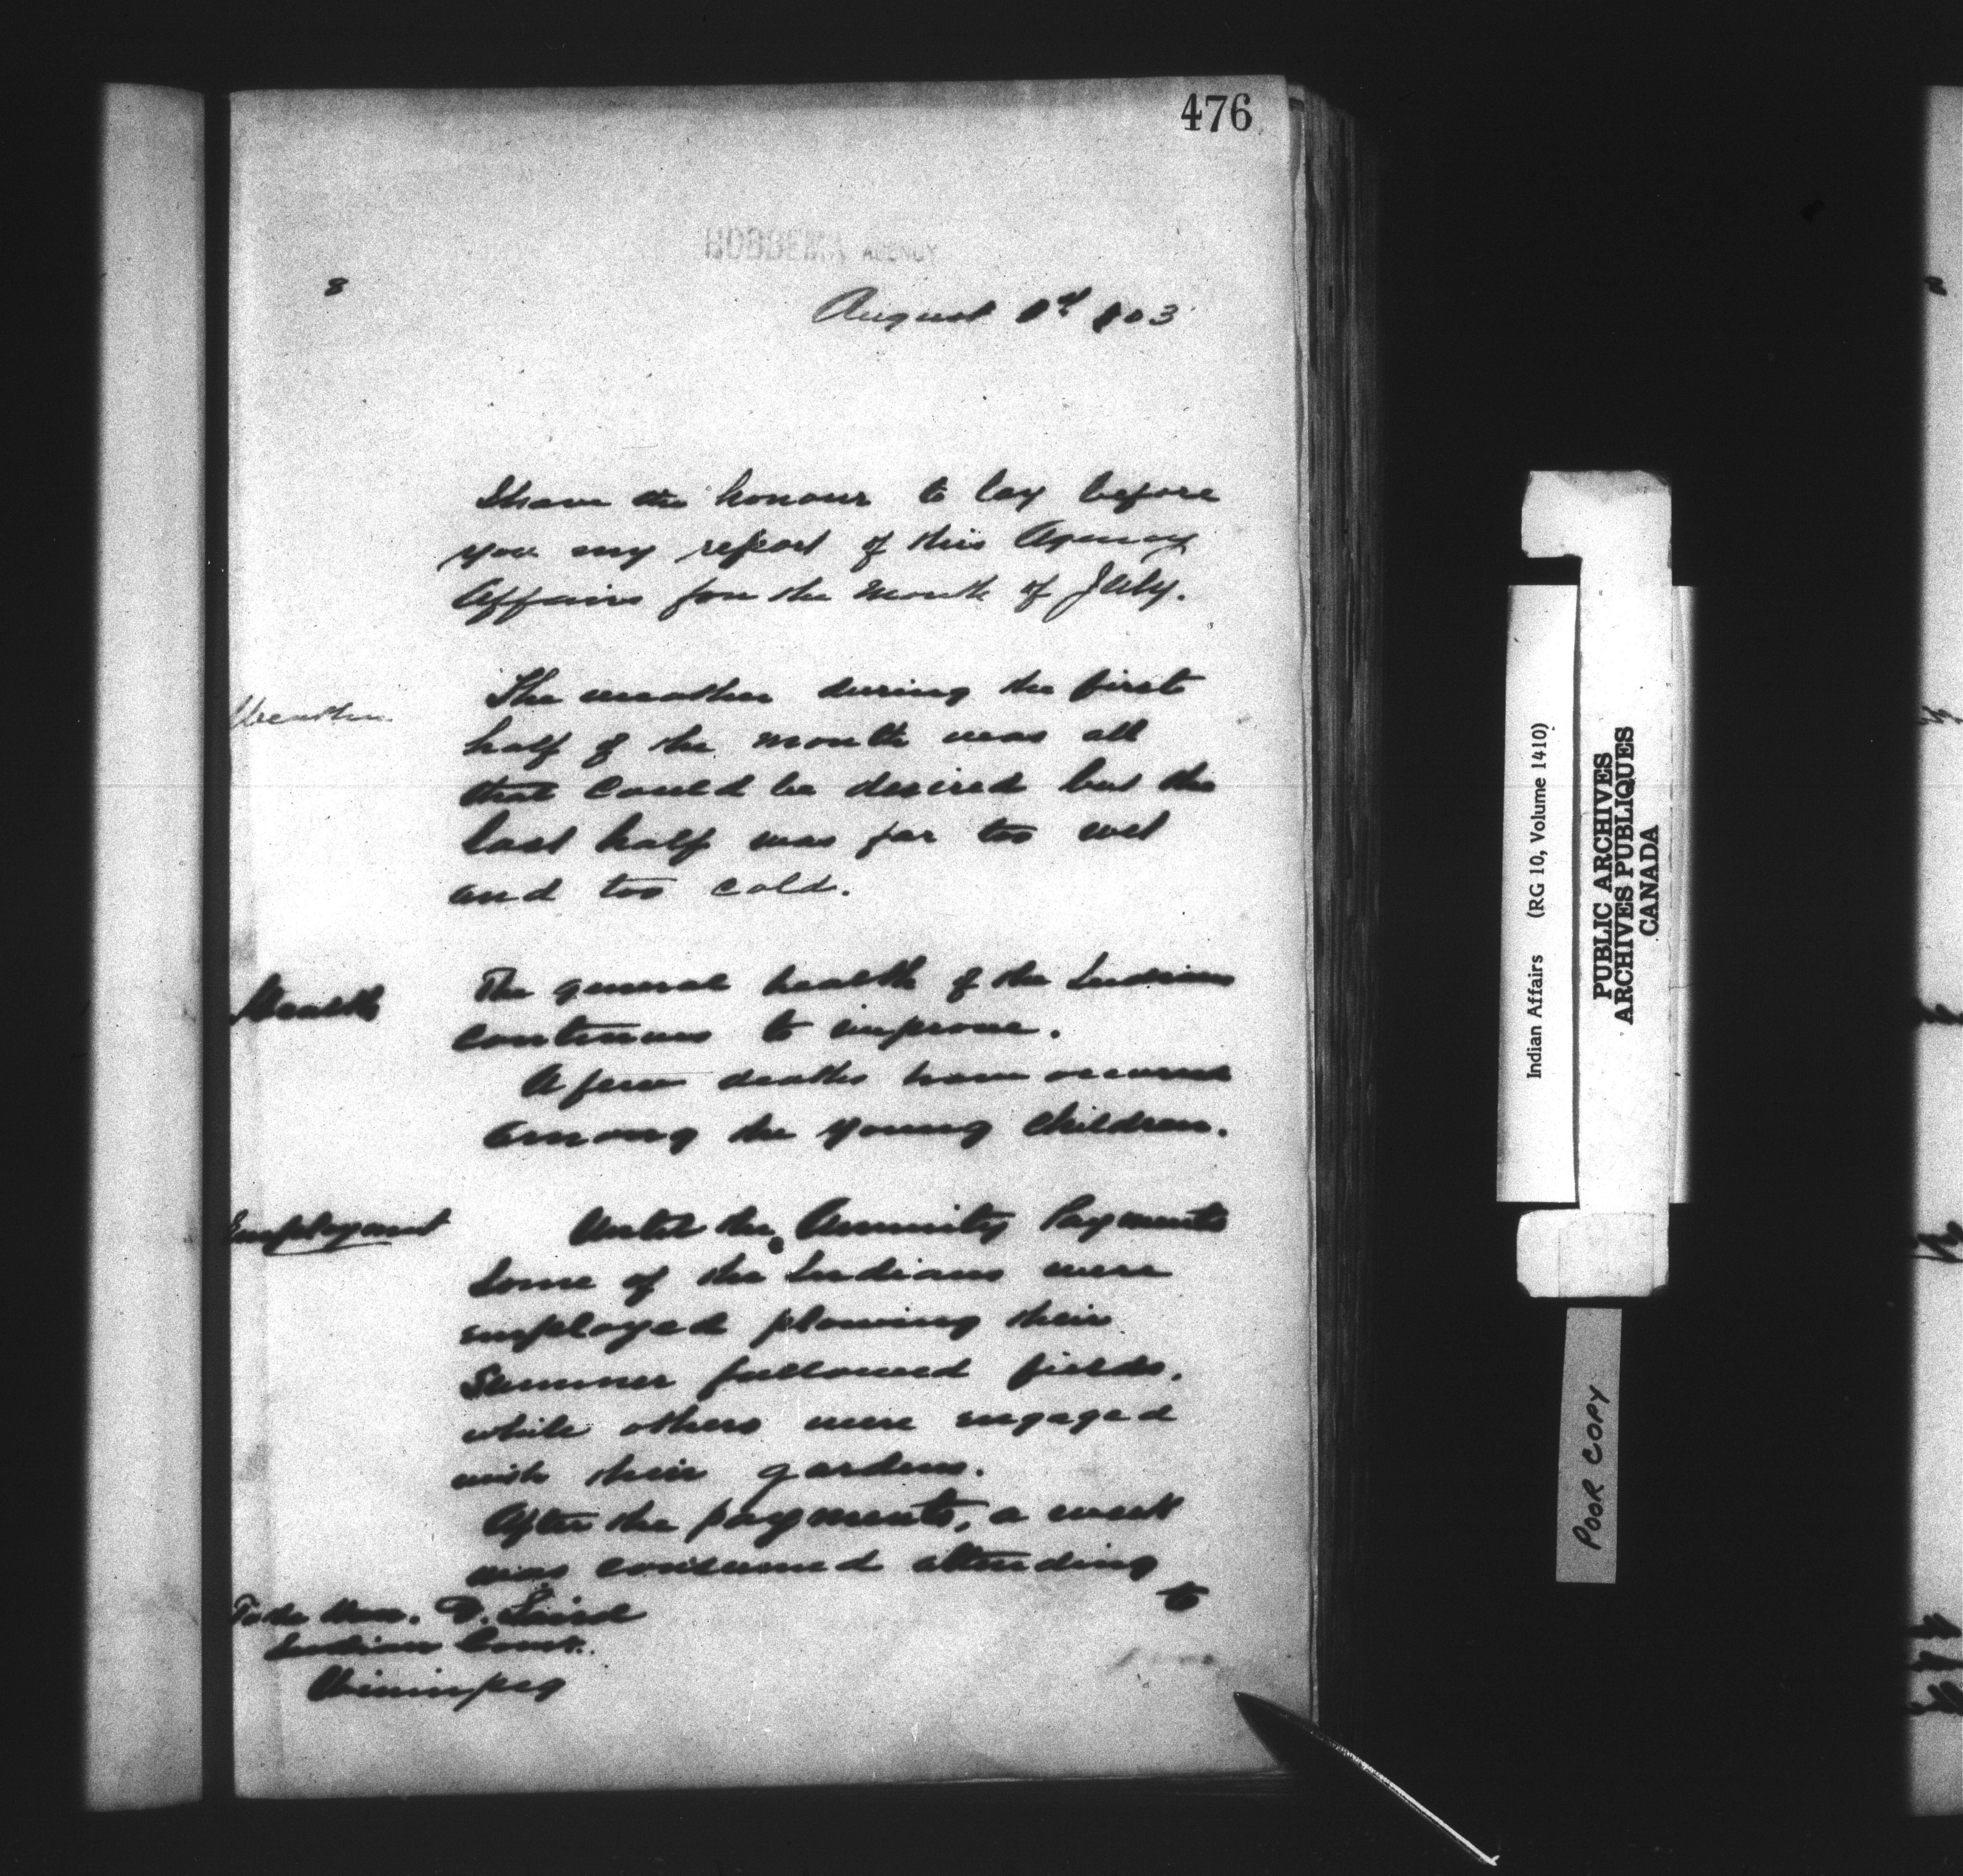 476
HOBBEMA AGENCY
8
August 1st 103
I have the honour to lay before
you my report of this Agency
Affairs for the month of July.
Weather
The weather during the first
half of the month was all
that could be desired but the
last half was far too wet
and too cold.
Health
The general health of the Indians
continues to improve.
A few deaths have occurred
among the young children.
Employment
Until the Annuity Payments
some of the Indians were
employed plowing their
Summer fallowed fields,
while others were engaged
with their gardens.
After the payments, a week
was consumed attending
to
To the Hon. D. Laird
Indian Comr.
Winnipeg
Indian Affairs (RG 10, Volume 1410)
PUBLIC ARCHIVES
ARCHIVES PUBLIQUES
CANADA
POOR COPY